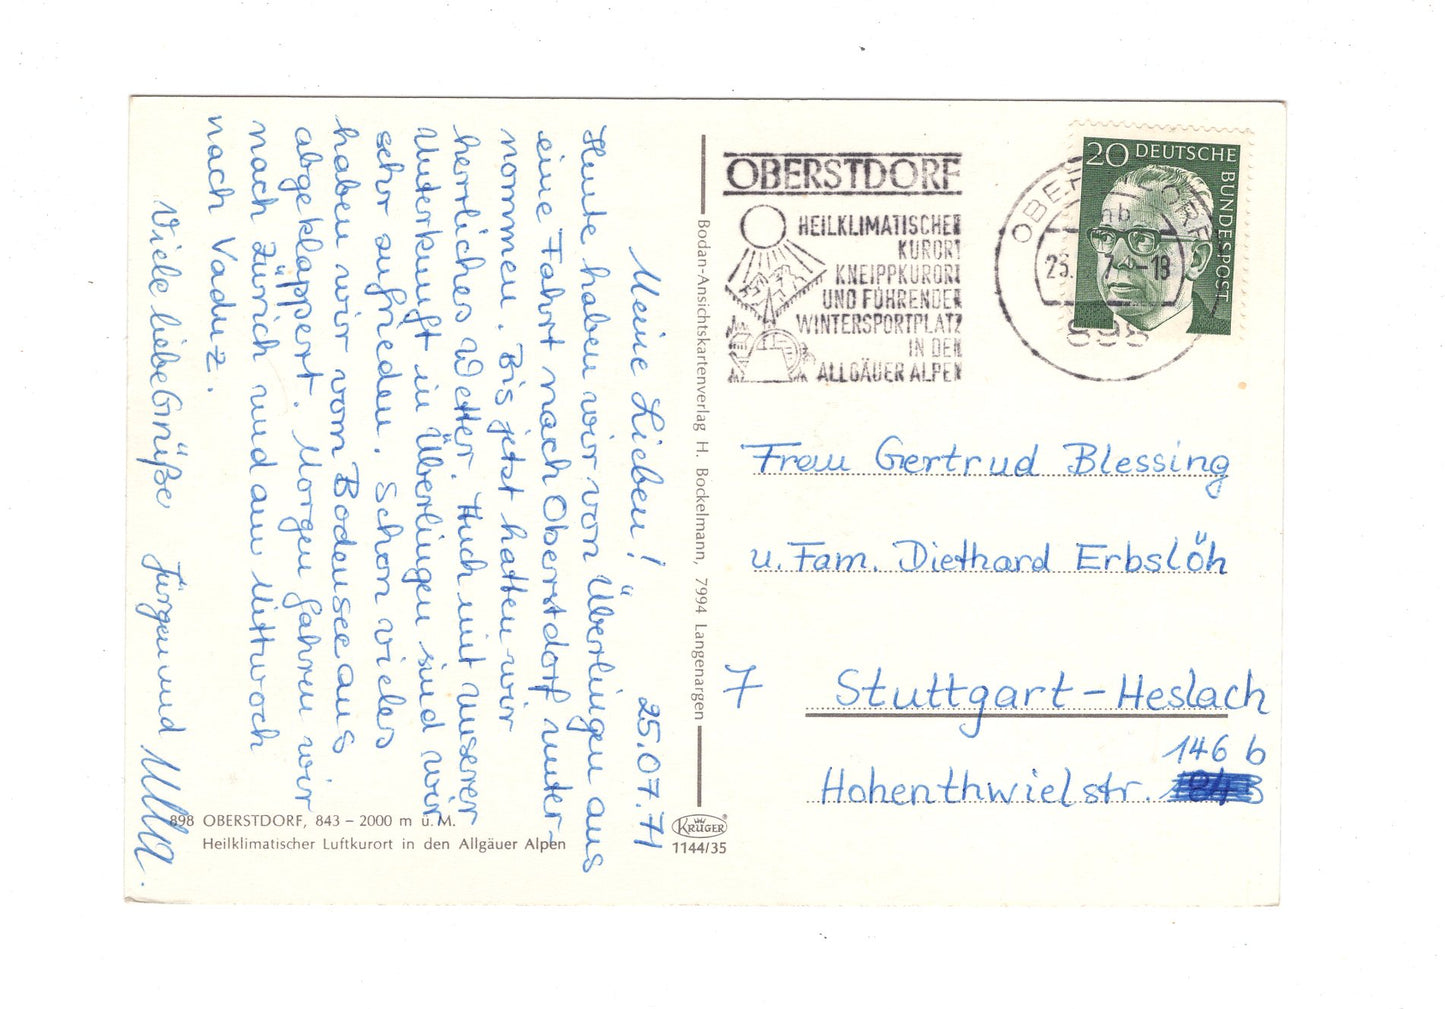 25.07.71
Meine Lieben!
Heute haben wir von Überlingen aus
eine Fahrt nach Oberstdorf unter-
nommen. Bis jetzt hatten wir
herrliches Wetter. Auch mit unserer
Unterkunft in Überlingen sind wir
sehr zufrieden. Schon vieles
haben wir vom Bodensee aus
abgeklappert. Morgen fahren wir
nach Zürich und am Mittwoch
nach Vaduz.
Viele liebe Grüße Jürgen und Ulla.
898 OBERSTDORF, 843 – 2000 m ü. M.
Heilklimatischer Luftkurort in den Allgäuer Alpen
Bodan-Ansichtskartenverlag H. Bockelmann, 7994 Langenargen
KRÜGER
1144/35
OBERSTDORF
HEILKLIMATISCHER
KURORT
KNEIPPKURORT
UND FÜHRENDER
WINTERSPORTPLATZ
IN DEN
ALLGÄUER ALPEN
OBERSTDORF
nb
898
20 DEUTSCHE
BUNDESPOST
Frau Gertrud Blessing
u. Fam. Diethard Erbslöh
7 Stuttgart-Heslach
146 b
Hohenthwielstr.